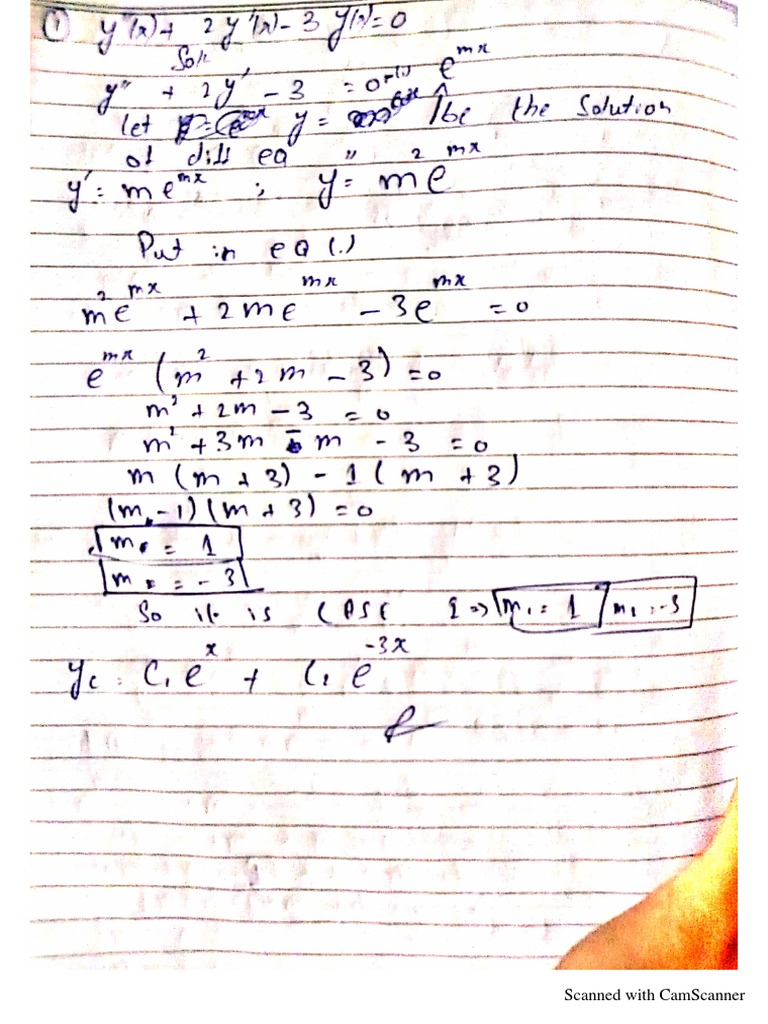 ① y''(x) + 2y'(x) - 3y(x) = 0
Sol
y'' + 2y' - 3 = 0 → (i) e^mx
let y = be the solution
of diff eq
y' = me^mx ; y'' = m²e^mx
Put in eq (i)
m²e^mx + 2me^mx - 3e^mx = 0
e^mx (m² + 2m - 3) = 0
m² + 2m - 3 = 0
m² + 3m - m - 3 = 0
m (m + 3) - 1 (m + 3)
(m - 1)(m + 3) = 0
m = 1
m = - 3
So it is CASE ⇒ m₁ = 1 m₂ = -3
yc = C₁e^x + C₂e^-3x
Scanned with CamScanner